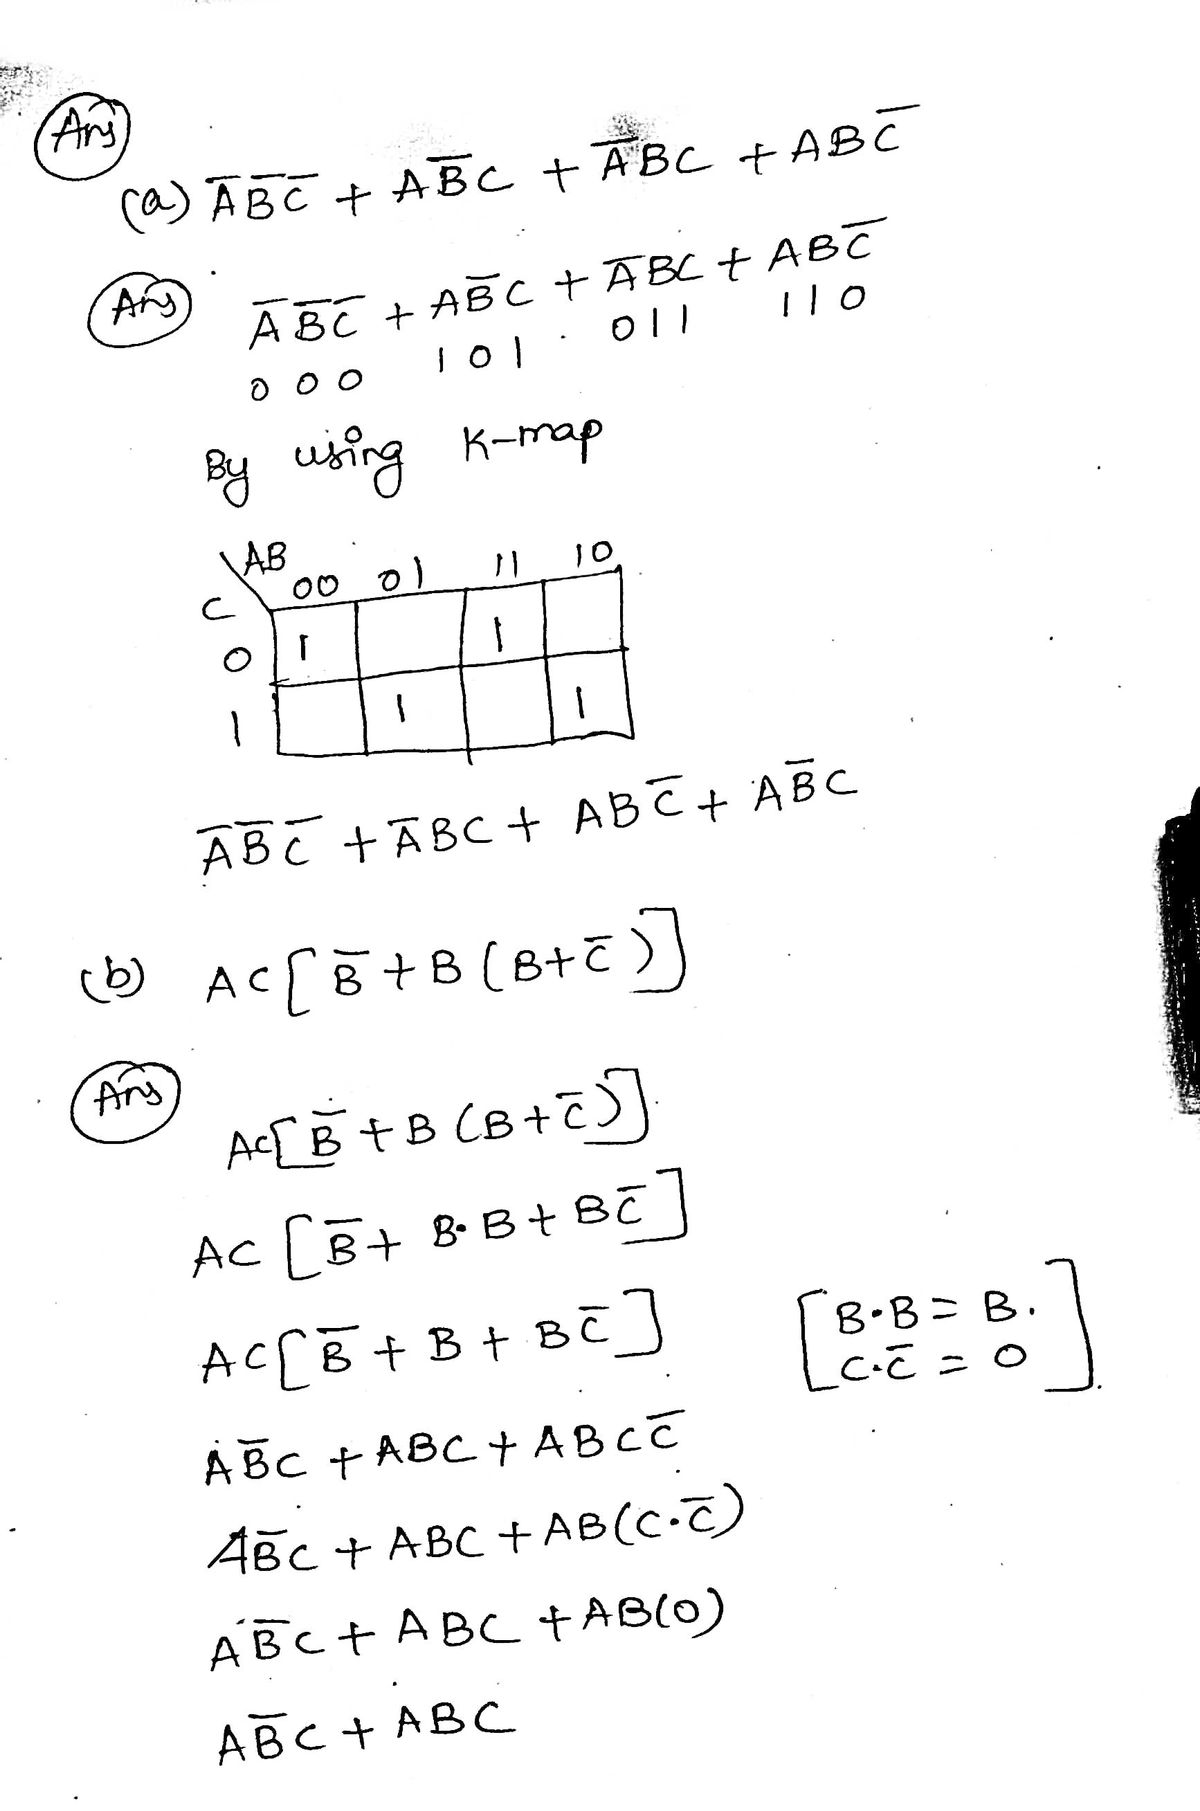 Ans
(a) A̅B̅C̅ + AB̅C + A̅BC + ABC̅
Ans A̅B̅C̅ + AB̅C + A̅BC + ABC̅
000 101 011 110
By using K-map
AB
C 00 01 11 10
0 1 1
1 1 1
A̅B̅C̅ + A̅BC + ABC̅ + AB̅C
(b) AC[B̅+B(B+C̅)]
Ans
AC[B̅+B(B+C̅)]
AC[B̅+B·B+BC̅]
AC[B̅+B+BC̅] [B·B=B.
C·C̅=0].
AB̅C+ABC+ABCC̅
AB̅C+ABC+AB(C·C̅)
AB̅C+ABC+AB(0)
AB̅C+ABC